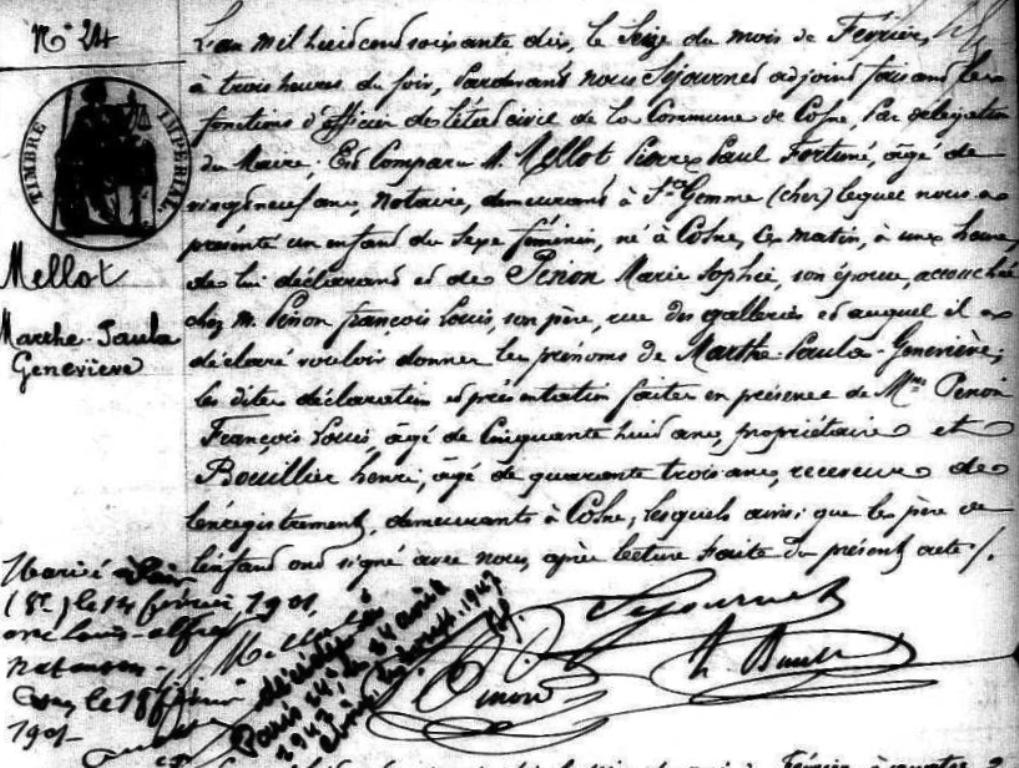 N° 24
L'an mil huit cent soixante dix, le seize du mois de Février,
à trois heures du soir, Pardevant nous Séjournet adjoint faisant les
fonctions d'officier de l'état civil de la Commune de Cosne, par délégation
du Maire; Est Comparu M. Mellot Pierre Paul Fortuné, âgé de
vingt neuf ans, Notaire, demeurant à Ste Gemme (cher) lequel nous a
présenté un enfant du sexe féminin, né à Cosne, ce matin, à une heure,
de lui déclarant et de Penon Marie Sophie, son épouse, accouchée
chez M. Penon françois Louis, son père, rue des galleries et auquel il a
déclaré vouloir donner les prénoms de Marthe-Paula-Geneviève;
les dites déclaration et présentation faites en présence de MMrs Penon
François Louis, âgé de Cinquante huit ans, propriétaire et
Bouillier henri, âgé de quarante trois ans, receveur de
l'enregistrement, demeurants à Cosne, lesquels ainsi que le père de
l'enfant ont signé avec nous, après lecture faite du présent acte /.
TIMBRE IMPERIAL
Mellot
Marthe-Paula
Geneviève
Marié à Paris
(8e) le 14 février 1901,
avec Louis-alfred
natanson-
Cosne, le 18 février
1901-
Mellot
décédée à
Paris le 24 avril
1947
Penon
Séjournet
h Bouillier